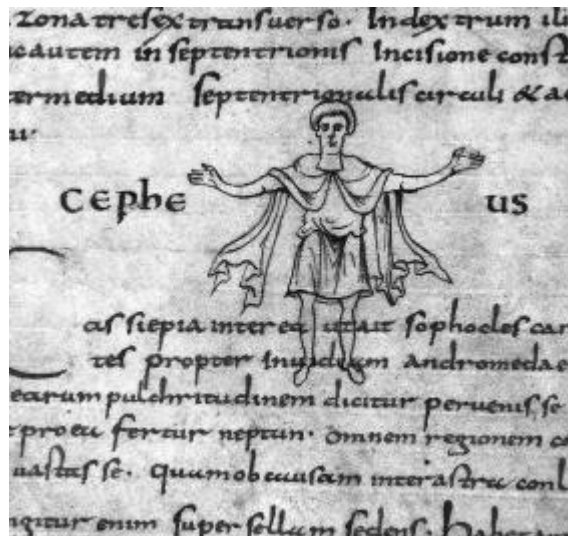 zona tresex transuerso. Index trum
autem in septentrionis Incisione const
termedium septentrionalis circuli & a
CEphe us
cassiepia inter ea utait sophocles
tes propter Inuidiam andromedae
earum pulchritudinem dicitur peruenisse
proea fertur neptun. omnem regionem
uastasse. Quamobcausam interastra conl
ngitur enim super sellam sedens. habet